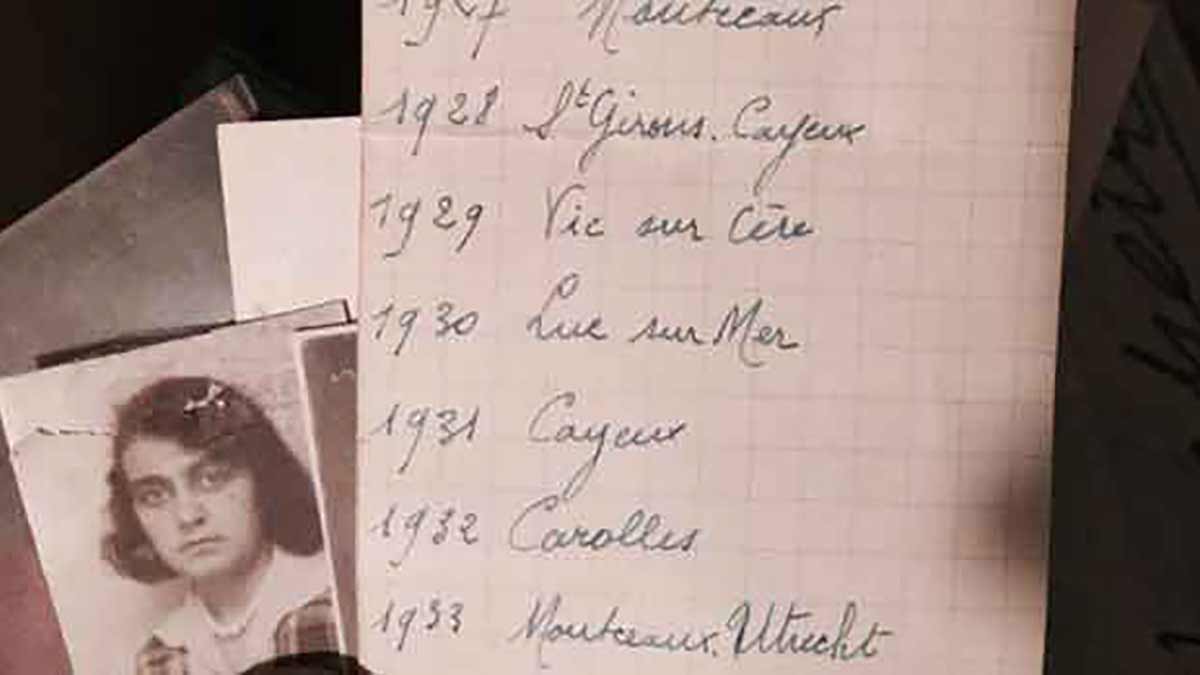 1927 Montceaux
1928 St Girons. Cayeux
1929 Vic sur Cère
1930 Luc sur Mer
1931 Cayeux
1932 Carolles
1933 Montceaux. Utrecht